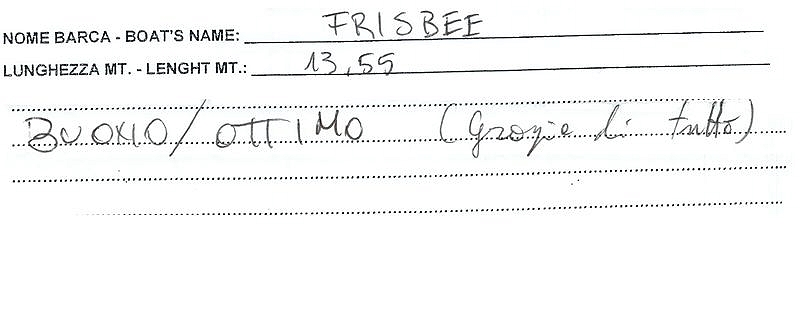 NOME BARCA - BOAT'S NAME: FRISBEE
LUNGHEZZA MT. - LENGHT MT.: 13,55
BUONO/OTTIMO (Grazie di tutto)